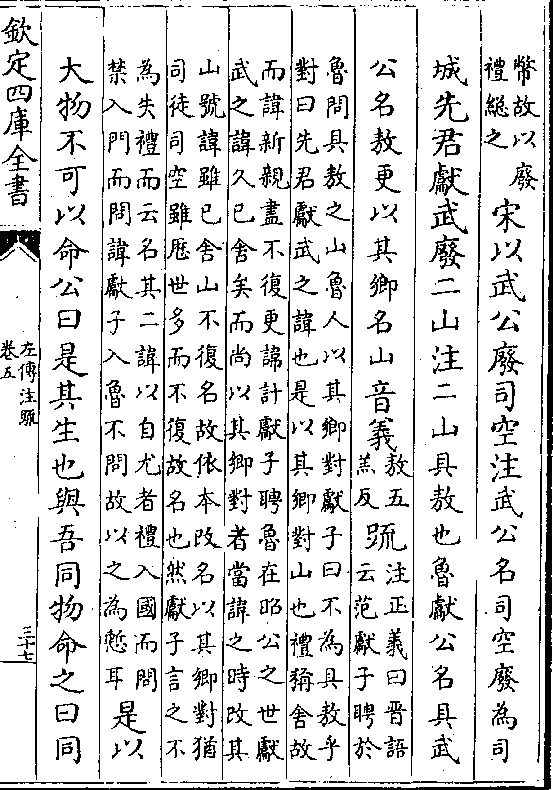 幣故以廢
禮總之
宋以武公廢司空注武公名司空廢為司
城先君獻武廢二山注二山具敖也魯獻公名具武
公名敖更以其鄉名山音義
敖五
羔反
䟽
注正義曰晋語
云范獻子聘於
魯問具敖之山魯人以其鄉對獻子曰不為具敖乎
對曰先君獻武之諱也是以其鄉對山也禮稱舍故
而諱新親盡不復更諱計獻子聘魯在昭公之世獻
武之諱久已舍矣而尚以其鄉對者當諱之時改其
山號諱雖已舍山不復名故依本改名以其鄉對猶
司徒司空雖歴世多而不復故名也然獻子言之不
為失禮而云名其二諱以自尤者禮入國而問
禁入門而問諱獻子入魯不問故以之為慙耳
是以
大物不可以命公曰是其生也與吾同物命之曰同
欽定四庫全書
左傳注䟽
卷五
三十七